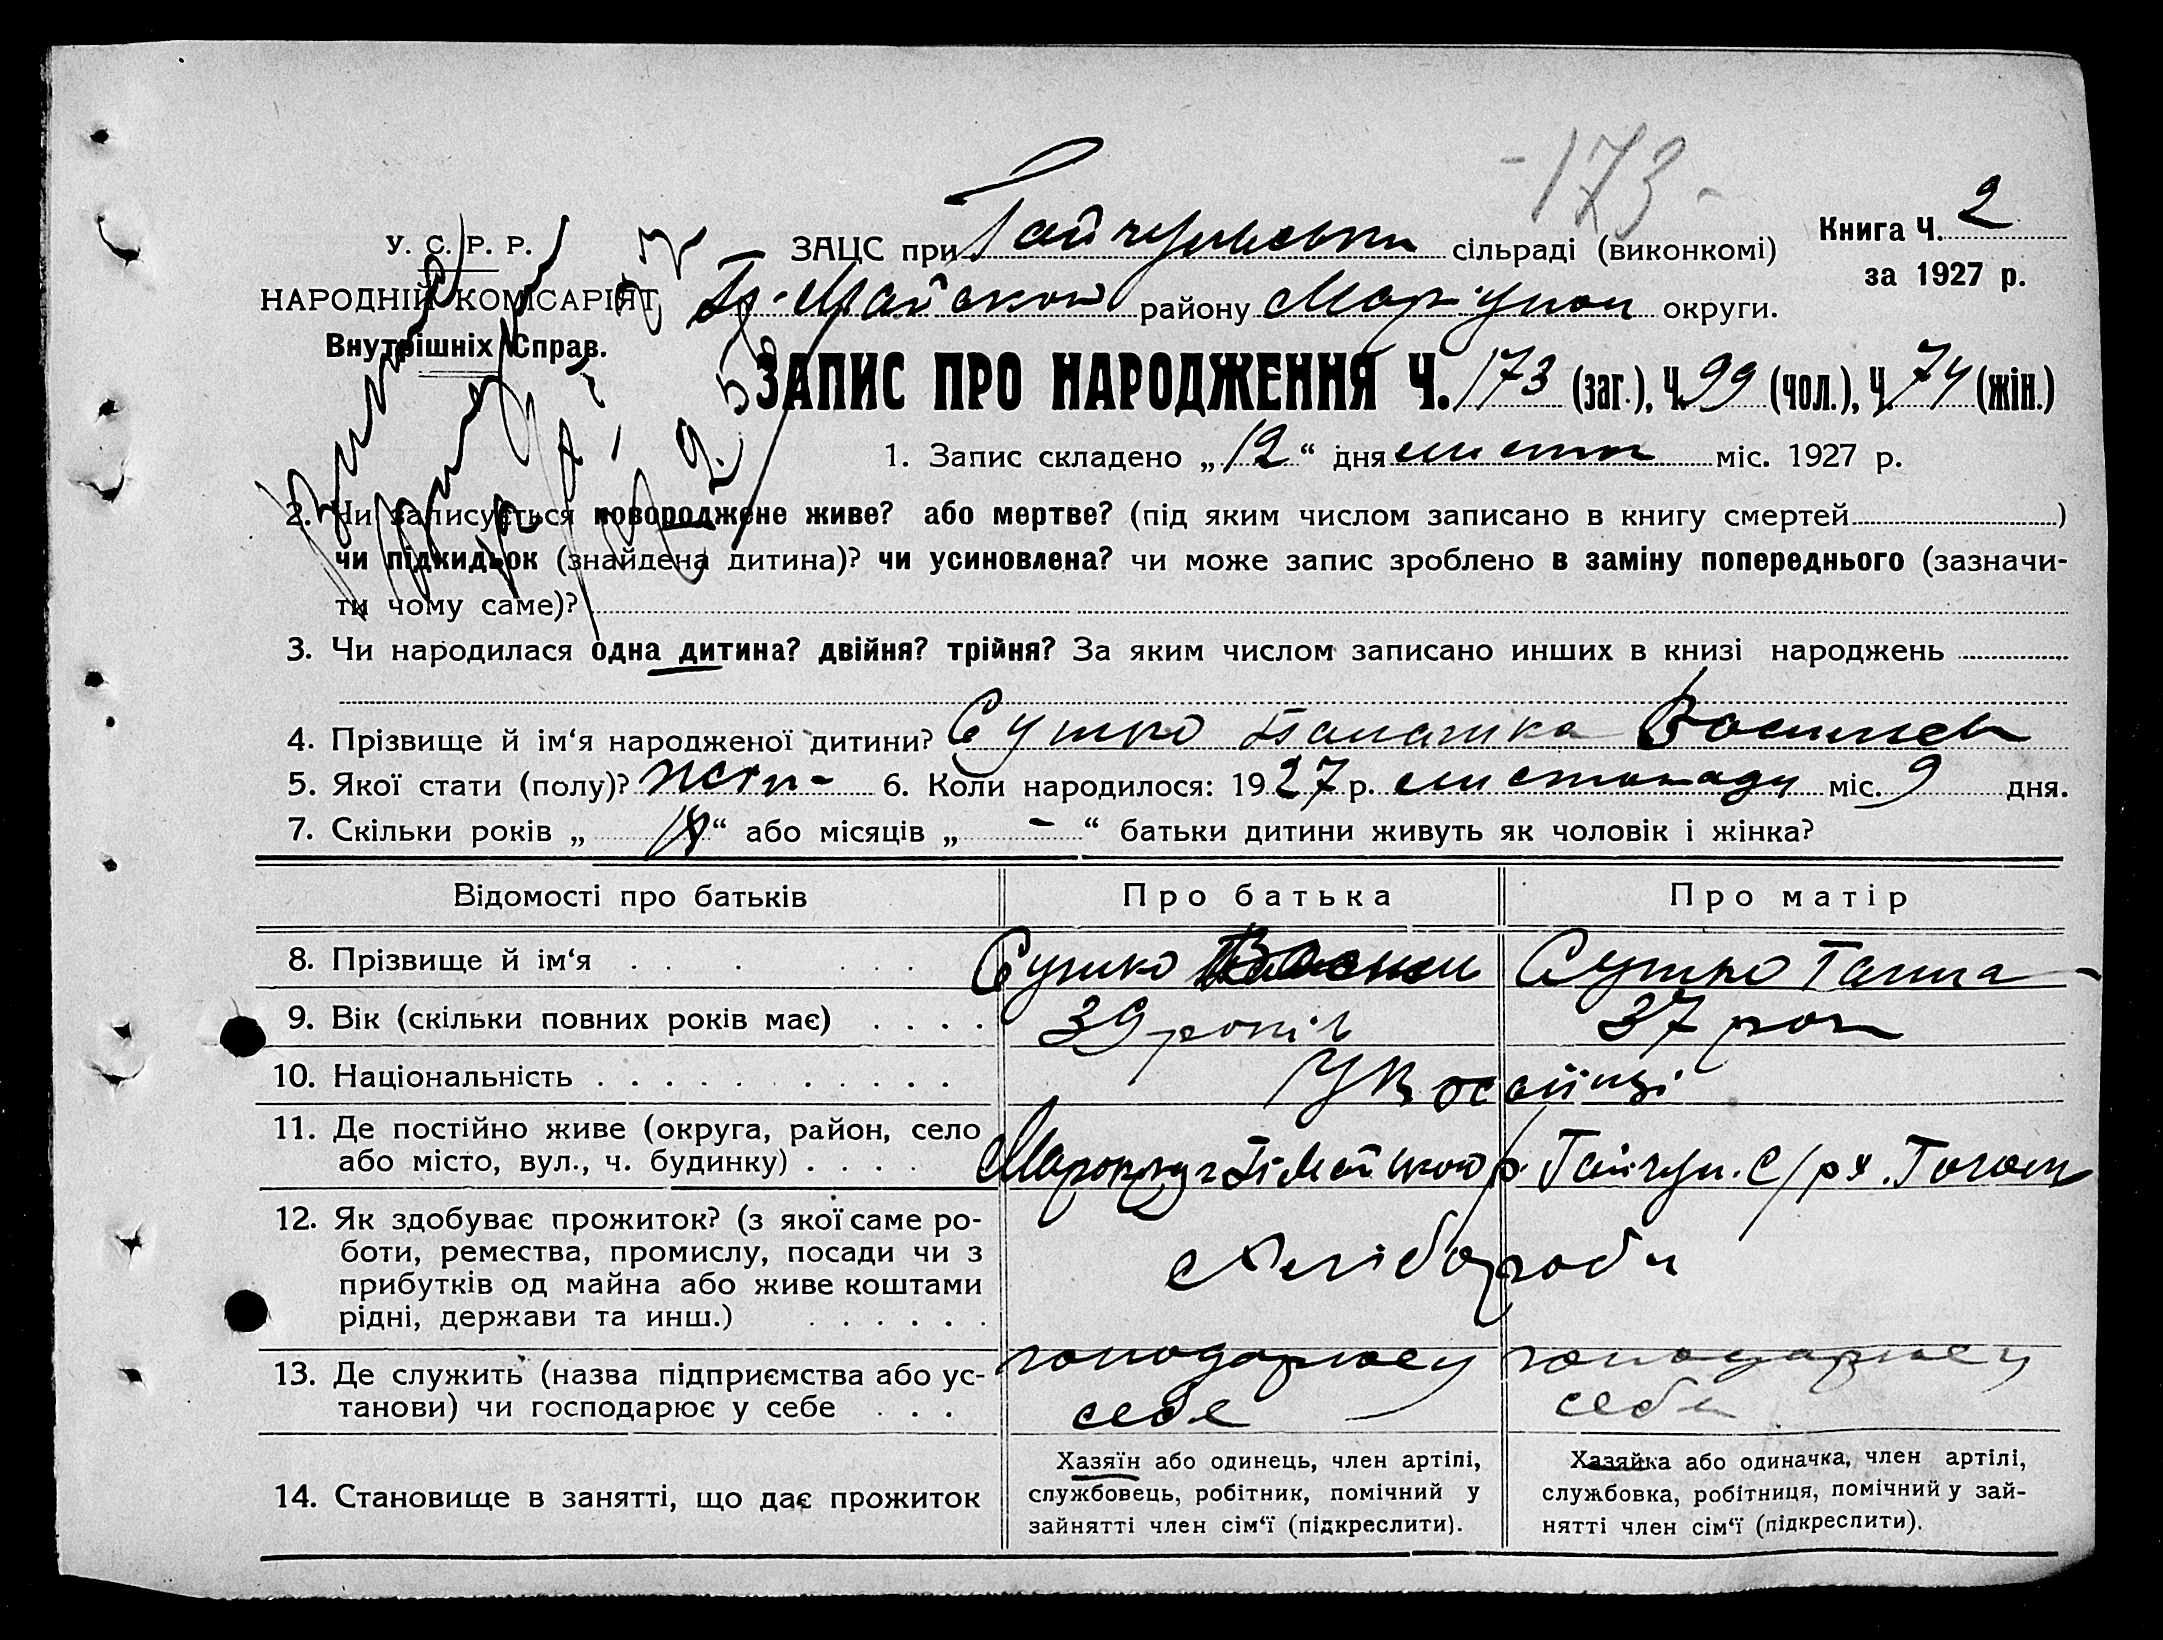 -173-
У. С. Р. Р.
НАРОДНІЙ КОМІСАРІЯТ
Внутрішніх Справ.
ЗАЦС при Гайчульськи сільраді (виконкомі)
Книга Ч. 2
за 1927 р.
району Маріупол округи.
ЗАПИС ПРО НАРОДЖЕННЯ Ч. 173 (заг.), Ч. 99 (чол.), Ч. 74 (жін.)
1. Запис складено „12“ дня листоп міс. 1927 р.
2. Чи записується новороджене живе? або мертве? (під яким числом записано в книгу смертей)
чи підкидьок (знайдена дитина)? чи усиновлена? чи може запис зроблено в заміну попереднього (зазначи-
ти чому саме)?
3. Чи народилася одна дитина? двійня? трійня? За яким числом записано инших в книзі народжень
4. Прізвище й ім‘я народженої дитини? Сушко Палашка Васильев
5. Якої стати (полу)? жін- 6. Коли народилося: 1927 р. листопаду міс. 9 дня.
7. Скільки років „18“ або місяців „-“ батьки дитини живуть як чоловік і жінка?
Відомості про батьків Про батька Про матір
8. Прізвище й ім‘я . . . . . . . Сушко Васил Сушко Ганна
9. Вік (скільки повних років має) . . . . 39 років 37 рок
10. Національність . . . . . . . . . . . Українці
11. Де постійно живе (округа, район, село
або місто, вул., ч. будинку) . . . .
12. Як здобуває прожиток? (з якої саме ро-
боти, ремества, промислу, посади чи з
прибутків од майна або живе коштами
рідні, держави та инш.) . . . . . .
Хлібороби
13. Де служить (назва підприємства або ус-
танови) чи господарює у себе . . .
господарює у себе
господарює у себе
14. Становище в занятті, що дає прожиток
Хазяїн або одинець, член артілі,
службовець, робітник, помічний у
зайнятті член сім‘ї (підкреслити).
Хазяйка або одиначка, член артілі,
службовка, робітниця, помічний у зай-
нятті член сім‘ї (підкреслити).